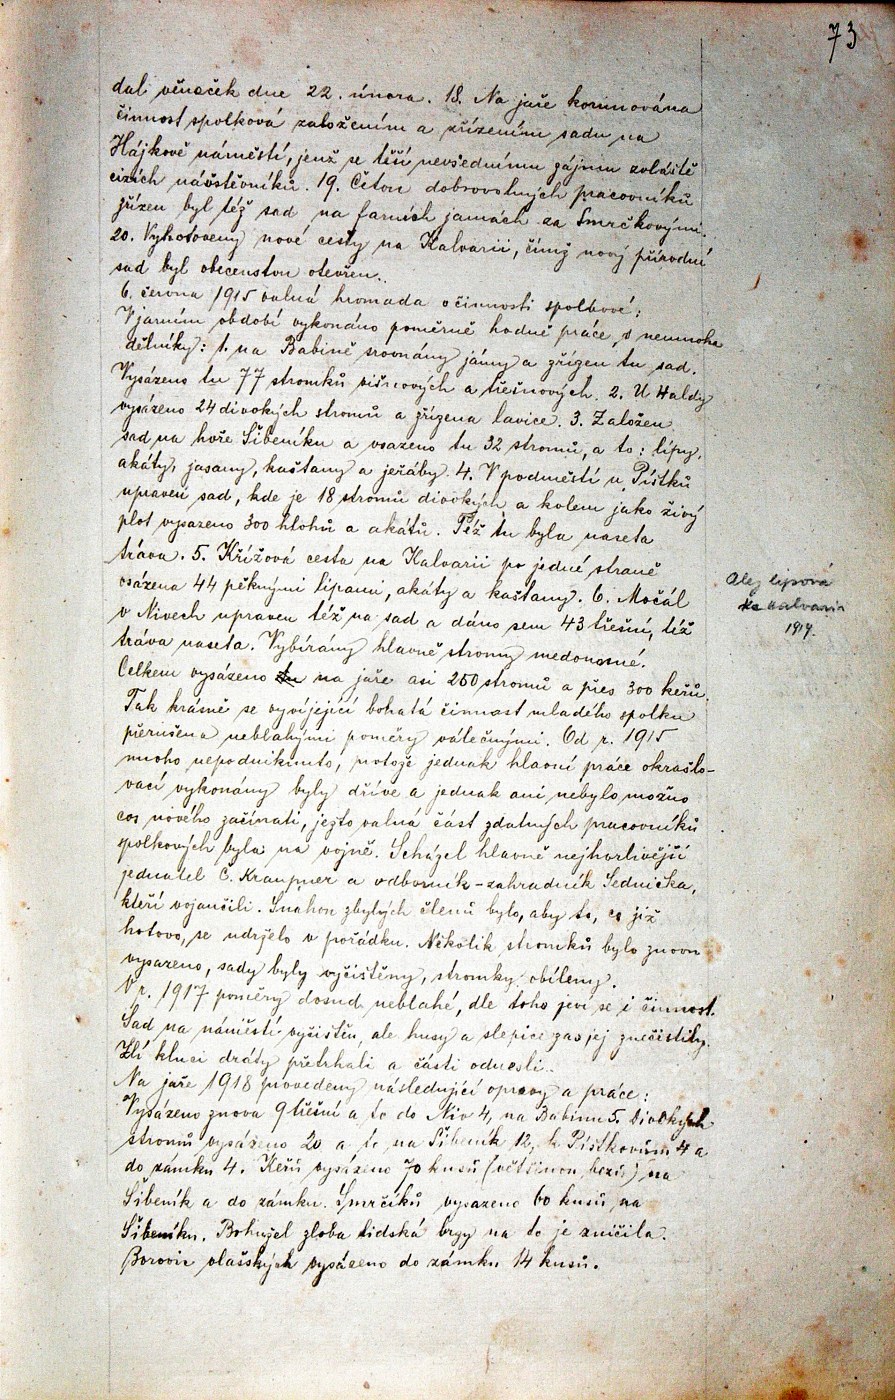 73
dal věneček dne 22. února. 18. Na jaře korunována
činnost spolková založením a zřízením sadu na
Hájkově náměstí, jenž se těší nevšednímu zájmu zvláště
cizích návštěvníků. 19. Četou dobrovolných pracovníků
zřízen byl též sad na farních jamách za Smrčkovými.
20. Vyhotoveny nové cesty na Kalvarii, čímž nový přírodní
sad byl obecenstvu otevřen.
6. června 1915 valná hromada o činnosti spolkové:
V jarním období vykonáno poměrně hodně práce, s nemnoha
dělníky: 1. na Babině srovnány jámy a zřízen tu sad.
Vysázeno tu 77 stromků višňových a třešňových. 2. U Haldy
vysázeno 24 divokých stromů a zřízena lavice. 3. Založen
sad na hoře Šibeníku a vsazeno tu 32 stromů, a to: lípy,
akáty, jasany, kaštany a jeřáby. 4. V podměstí u Píštků
upraven sad, kde je 18 stromů divokých a kolem jako živý
plot vysazeno 300 hlohů a akátů. Též tu byla naseta
tráva. 5. Křížová cesta na Kalvarii po jedné straně
osázena 44 pěknými lípami, akáty a kaštany. 6. Močál
v Nivech upraven též na sad a dáno sem 43 třešní, též
tráva naseta. Vybírány hlavně stromy medonosné.
Celkem vysázeno tu na jaře asi 250 stromů a přes 300 keřů.
Alej lipová
ke Kalvarii
1914.
Tak krásně se vyvíjející bohatá činnost mladého spolku
přerušena neblahými poměry válečnými. Od r. 1915
mnoho nepodniknuto, protože jednak hlavní práce okrašlo-
vací vykonány byly dříve a jednak ani nebylo možno
cos nového začínati, ježto valná část zdatných pracovníků
spolkových byla na vojně. Scházel hlavně nejhorlivější
jednatel Č. Kraupner a odborník-zahradník Sednička,
kteří vojančili. Snahou zbylých členů bylo, aby to, co již
hotovo, se udrželo v pořádku. Několik stromků bylo znovu
vysazeno, sady byly vyčištěny, stromky obíleny.
V r. 1917 poměry dosud neblahé, dle toho jeví se i činnost.
Sad na náměstí vyčištěn, ale husy a slepice zas jej znečistily.
Zlí kluci dráty přetrhali a části odnesli.
Na jaře 1918 provedeny následující opravy a práce:
Vysázeno znova 9 třešní a to do Niv 4, na Babinu 5. Divokých
stromů vysázeno 20 a to na Šibeník 12, k Píštkovům 4 a
do zámku 4. Keřů vysázeno 70 kusů (většinou bezů) na
Šibeník a do zámku. Smrčíků vysazeno 60 kusů na
Šibeníku. Bohužel zloba lidská brzy na to je zničila.
Borovic vlašských vysázeno do zámku 14 kusů.